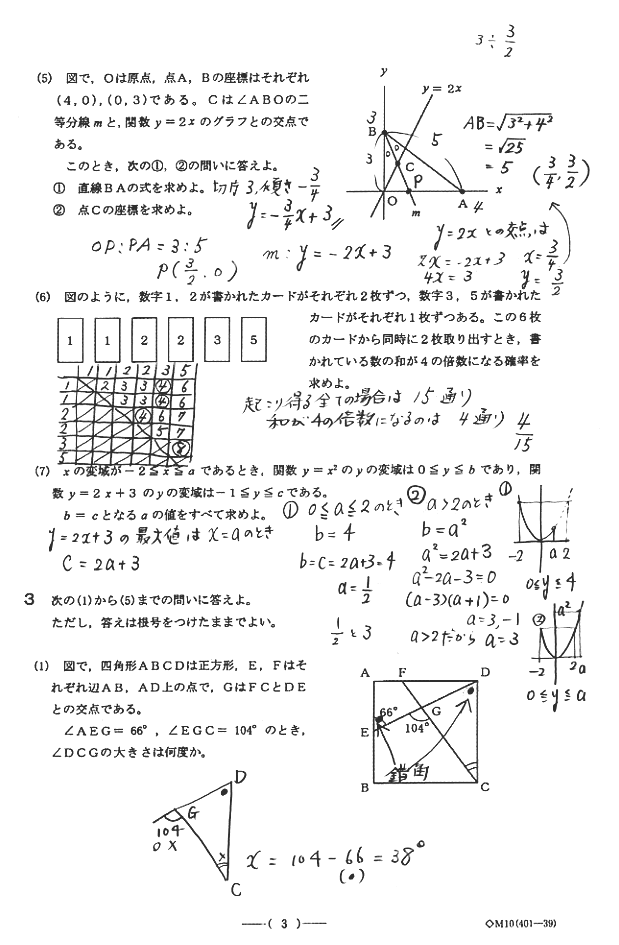 3÷3/2
(5) 図で，Oは原点，点A，Bの座標はそれぞれ
(4,0),(0,3)である。Cは∠ABOの二
等分線mと,関数y=2xのグラフとの交点で
ある。
このとき，次の①，②の問いに答えよ。
① 直線BAの式を求めよ。切片3,傾き-3/4
② 点Cの座標を求めよ。 y=-3/4x+3
OP:PA=3:5
P(3/2,0)
m:y=-2x+3
y
y=2x
3
B
5
3
C
P
O
m
A 4
x
AB=√3²+4²
=√25
=5
(3/4,3/2)
y=2xとの交点は
2x=-2x+3 x=3/4
4x=3 y=3/2
(6) 図のように，数字1，2が書かれたカードがそれぞれ2枚ずつ，数字3，5が書かれた
カードがそれぞれ1枚ずつある。この6枚
のカードから同時に2枚取り出すとき，書
かれている数の和が4の倍数になる確率を
求めよ。
1 1 2 2 3 5
1 1 2 2 3 5
1 2 3 3 ④ 6
1 3 3 ④ 6
2 ④ 6 7
2 5 7
3 ⑧
5
起こり得る全ての場合は 15通り
和が4の倍数になるのは 4通り 4/15
(7) xの変域が-2≦x≦aであるとき，関数y=x²のyの変域は0≦y≦bであり，関
数y=2x+3のyの変域は-1≦y≦cである。
b=cとなるaの値をすべて求めよ。
y=2x+3の最大値はx=aのとき
C=2a+3
① 0≦a≦2のとき
b=4
b=c=2a+3=4
a=1/2
1/2と3
② a>2のとき
b=a²
a²=2a+3
a²-2a-3=0
(a-3)(a+1)=0
a=3,-1
a>2だから a=3
①
-2 a 2
0≦y≦4
②
a²
-2 2a
0≦y≦a
3 次の(1)から(5)までの問いに答えよ。
ただし，答えは根号をつけたままでよい。
(1) 図で，四角形ABCDは正方形，E，Fはそ
れぞれ辺AB，AD上の点で，GはFCとDE
との交点である。
∠AEG=66°，∠EGC=104°のとき，
∠DCGの大きさは何度か。
A F D
66°
G
E
104°
錯角
B C
D
G
104
x
C
x=104-66=38°
(•)
――( 3 )――
◇M10(401―39)